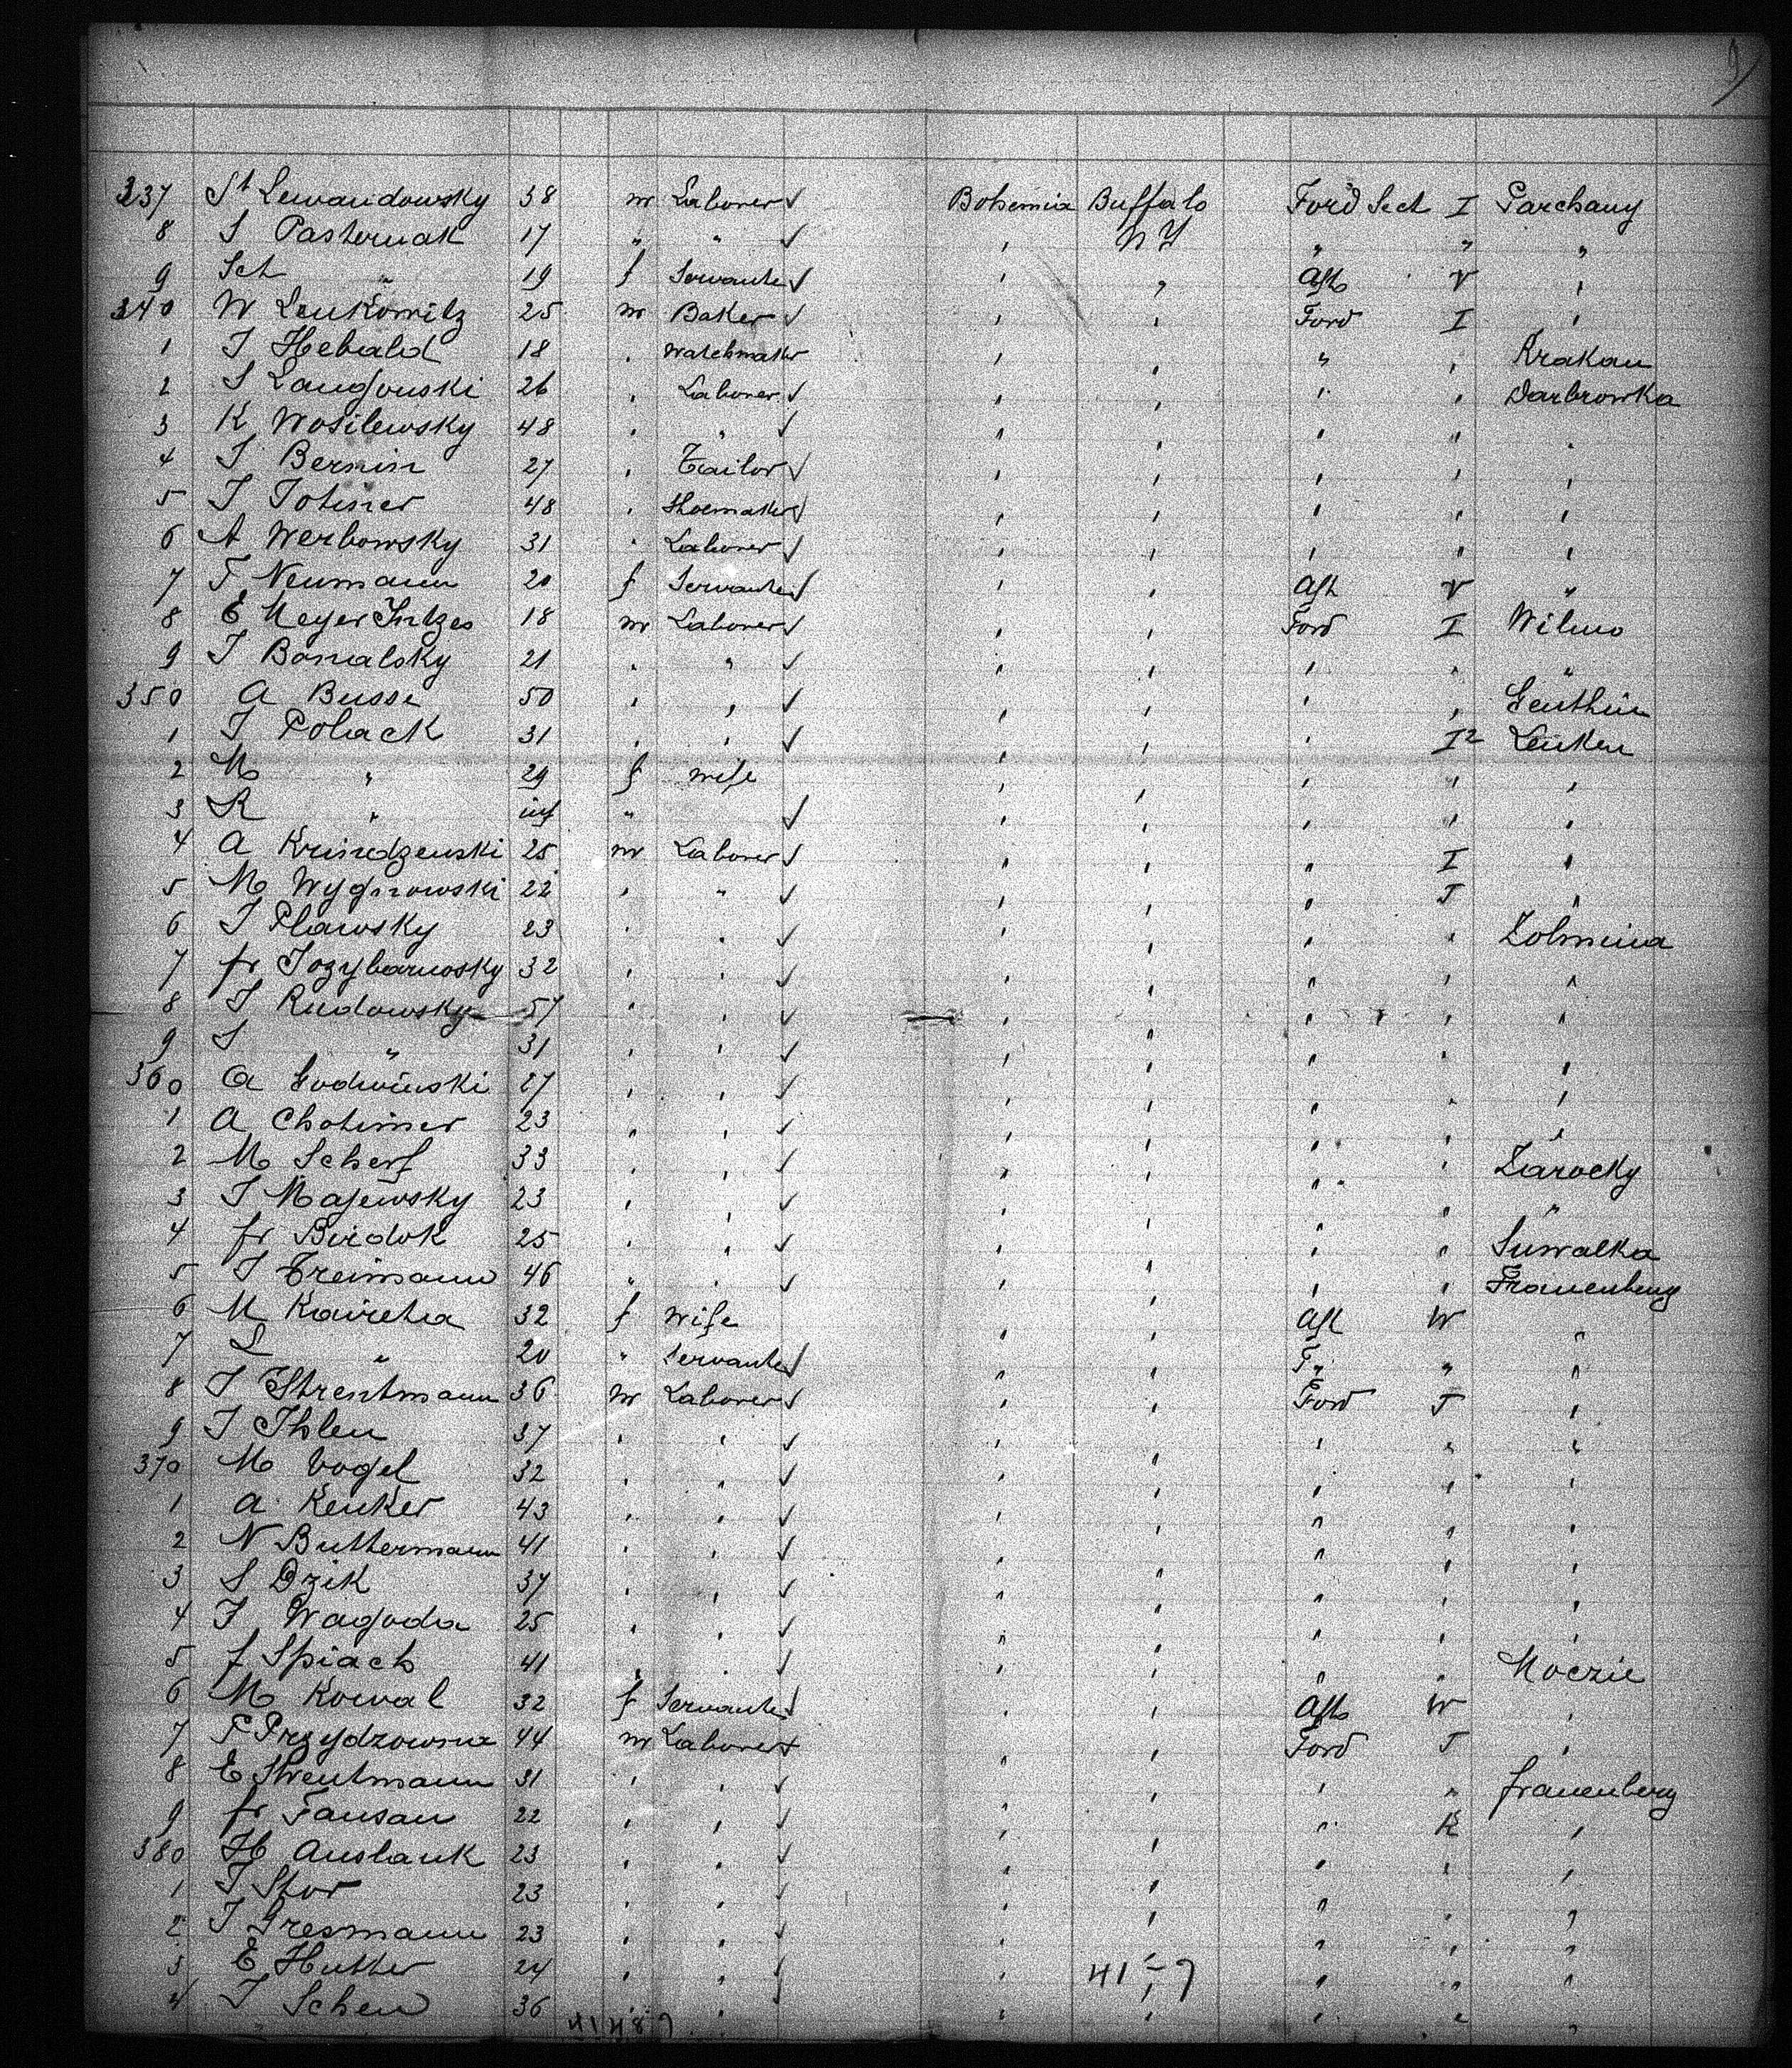 9)
337 St Lewandowsky 38 m Laborer √ Bohemia Buffalo Ford Sect I Parchany
8 S Pasternak 17 " " √ , N Y " " "
9 Sch " 19 f Servante √ , " Afts V ,
340 W Leukowitz 25 m Baker √ , , Ford I ,
1 J Hebald 18 , Watchmakr , , " , Krakau
2 S Langfouski 26 , Laborer √ , , " , Darbrowka
3 K Wosilewsky 48 , " √ , , , " "
4 J Bernin 27 , Tailor √ , , , , ,
5 J Totiner 48 , Shoemaker √ , , , , ,
6 A Werbowsky 31 , Laborer √ , , , , ,
7 T Neumann 20 f Servante √ , , Aft V "
8 E Meyer Intzes 18 m Laborer √ , , Ford I Wilno
9 J Bonalsky 21 , " √ , , , , "
350 A Busse 50 , , √ , , , , Genthin
1 J Polack 31 , , √ , , , I2 Leuken
2 M " 29 f wife , , , " ,
3 R " inf " √ , , , , ,
4 A Krindzenski 25 m Laborer √ , , , I ,
5 M Wygnowski 22 , " √ , , , I "
6 J Plawsky 23 , , √ , , , , Zolmina
7 fr Jozybarwosky 32 , , √ , , , , "
8 J Rudowsky 57 , , √ , , , , ,
9 S " 31 , , √ , , , , ,
360 A Godwinski 27 , , √ , , , , ,
1 A Chotimer 23 , , √ , , , , ,
2 M Scherf 33 , , √ , , , , Zarocky
3 J Majewsky 23 , , √ , , , , "
4 fr Birdok 25 , , √ , , , , Suwalka
5 J Treimann 46 , , √ , , , , Frauenberg
6 M Kaireha 32 f wife , , Aft W ,
7 L " 20 " Servante √ , , " "
8 J Strentmann 36 m Laborer √ , , Ford I ,
9 J Ihlen 37 , , √ , , , , ,
370 M Vogel 32 , , √ , , , , ,
1 A Kenker 43 , , √ , , , , ,
2 N Buttermann 41 , , √ , , , , ,
3 S Dzik 37 , , √ , , , , ,
4 J Wagoda 25 , , √ , , , , ,
5 f Spiach 41 , , √ , , , , Moczie
6 M Kowal 32 f Servante √ , , Afts W ,
7 P Przydzowna 44 m Laborer + , , Ford I ,
8 E Strentmann 31 , , √ , , , " frauenberg
9 fr Fansau 22 , , √ , , , K ,
380 H Auslank 23 , , √ , , , , ,
1 J Stor 23 , , √ , , , , ,
2 J Gresmann 23 , , √ , , , , ,
3 E Hutter 24 , , √ , 41-7 , , ,
4 J Schen 36 , , , , , , ,